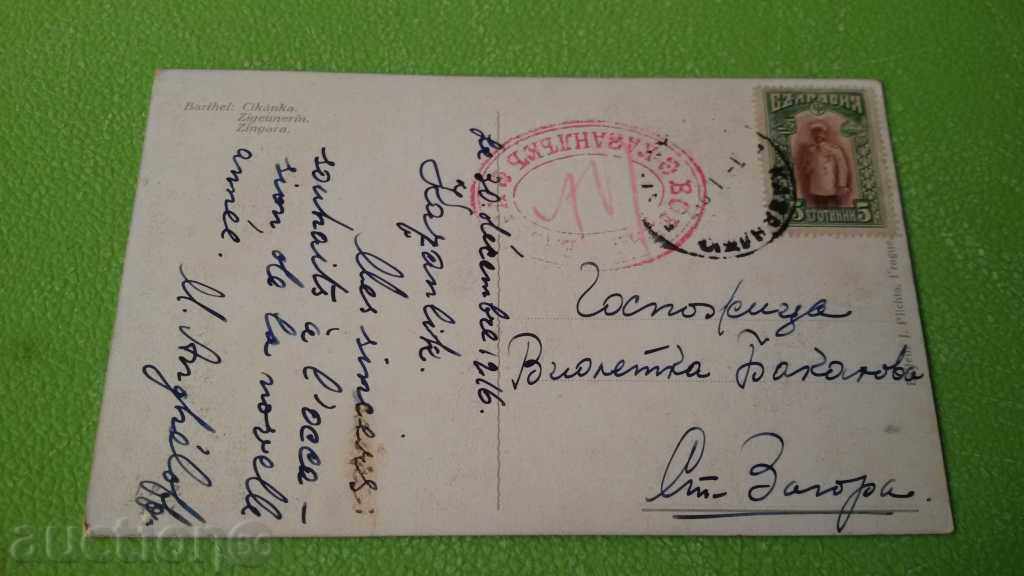 Barthel: Cikánka.
Zigeunerin.
Zingara.
Le 30 décembre 1916.
Kazanlik.
Mes sincères
souhaits à l'occa-
sion de la novelle
année.
M. Anghéloff
БЪЛГАРИЯ
5 СТОТИНКИ 5
КАЗАНЛЪКЪ
Госпожица
Виолетка Бакалова
Ст. Загора.
J. Plichta, Prague
auction